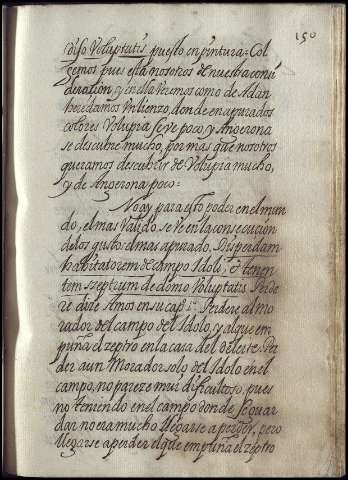 150
diso Voluptutis puesto en pintura: Col
gemos pues esta nosotros de nuestra consi
deracion, y en ella veremos como de Adan
heredamos un lienzo, donde en apurados
colores Volupia se ve poco y Angerona
se descubre mucho, por mas que nosotros
queramos descubrir de Volupia mucho,
y de Angerona poco:
No ay para esto poder en el mun
do, el mas Valido se ve en la consecucion
de los gustos el mas apurado. Disperdam
habitatorem de campo Idoli, & tenen
tem szeptrum de domo Voluptatis. Perde
re dize Amos en su cap. 1º. Perdere al mo
rador del campo del Idolo, y al que em
puña el zeptro en la casa del deleite. Per
der a un Morador solo del Idolo en el
campo, no pareze mui dificultoso, pues
no teniendo en el campo donde se guar
dar no era mucho llegarse a perder, pero
llegarse a perder el que empuña el zeptro